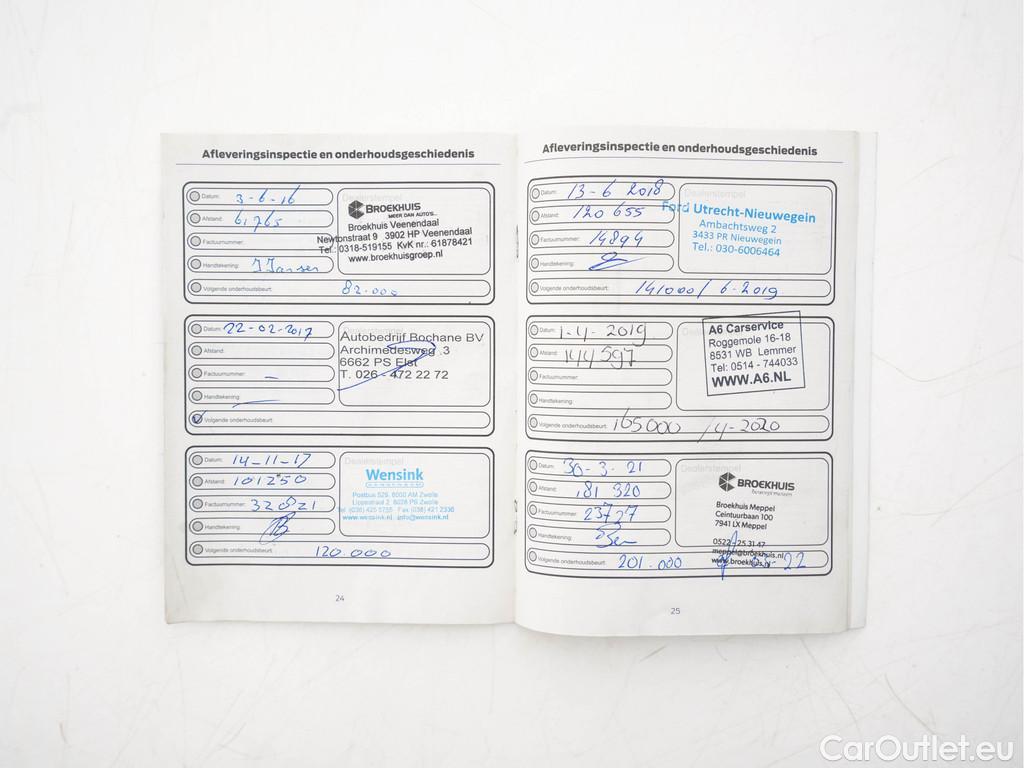 Afleveringsinspectie en onderhoudsgeschiedenis
Datum: 3-6-16
Afstand: 61,765
Factuurnummer:
Handtekening: J Jansen
Volgende onderhoudsbeurt: 82.000
BROEKHUIS
MEER DAN AUTO'S...
Broekhuis Veenendaal
Newtonstraat 9 3902 HP Veenendaal
Tel.: 0318-519155 KvK nr.: 61878421
www.broekhuisgroep.nl
Datum: 22-02-2017
Afstand:
Factuurnummer: –
Handtekening:
Volgende onderhoudsbeurt:
Autobedrijf Bochane BV
Archimedesweg 3
6662 PS Elst
T. 026 - 472 22 72
Datum: 14-11-17
Afstand: 101250
Factuurnummer: 320821
Handtekening:
Volgende onderhoudsbeurt: 120.000
Dealerstempel
Wensink
Postbus 529, 8000 AM Zwolle
Lippestraat 2 8028 PS Zwolle
Tel (038) 425 5755 Fax (038) 421 2336
www.wensink.nl info@wensink.nl
24
Afleveringsinspectie en onderhoudsgeschiedenis
Datum: 13-6 2018
Afstand: 120 655
Factuurnummer: 14894
Handtekening:
Volgende onderhoudsbeurt: 141000 / 6-2019
Dealerstempel
Ford Utrecht-Nieuwegein
Ambachtsweg 2
3433 PR Nieuwegein
Tel.: 030-6006464
Datum: 1-4-2019
Afstand: 144597
Factuurnummer:
Handtekening:
Volgende onderhoudsbeurt: 165000 / 4-2020
A6 Carservice
Roggemole 16-18
8531 WB Lemmer
Tel: 0514 - 744033
WWW.A6.NL
Datum: 30-3-21
Afstand: 181 320
Factuurnummer: 23727
Handtekening:
Volgende onderhoudsbeurt: 201.000 22
Dealerstempel
BROEKHUIS
Broekhuis Meppel
Ceintuurbaan 100
7941 LX Meppel
0522 - 25 31 47
meppel@broekhuis.nl
www.broekhuis.nl
25
CarOutlet.eu